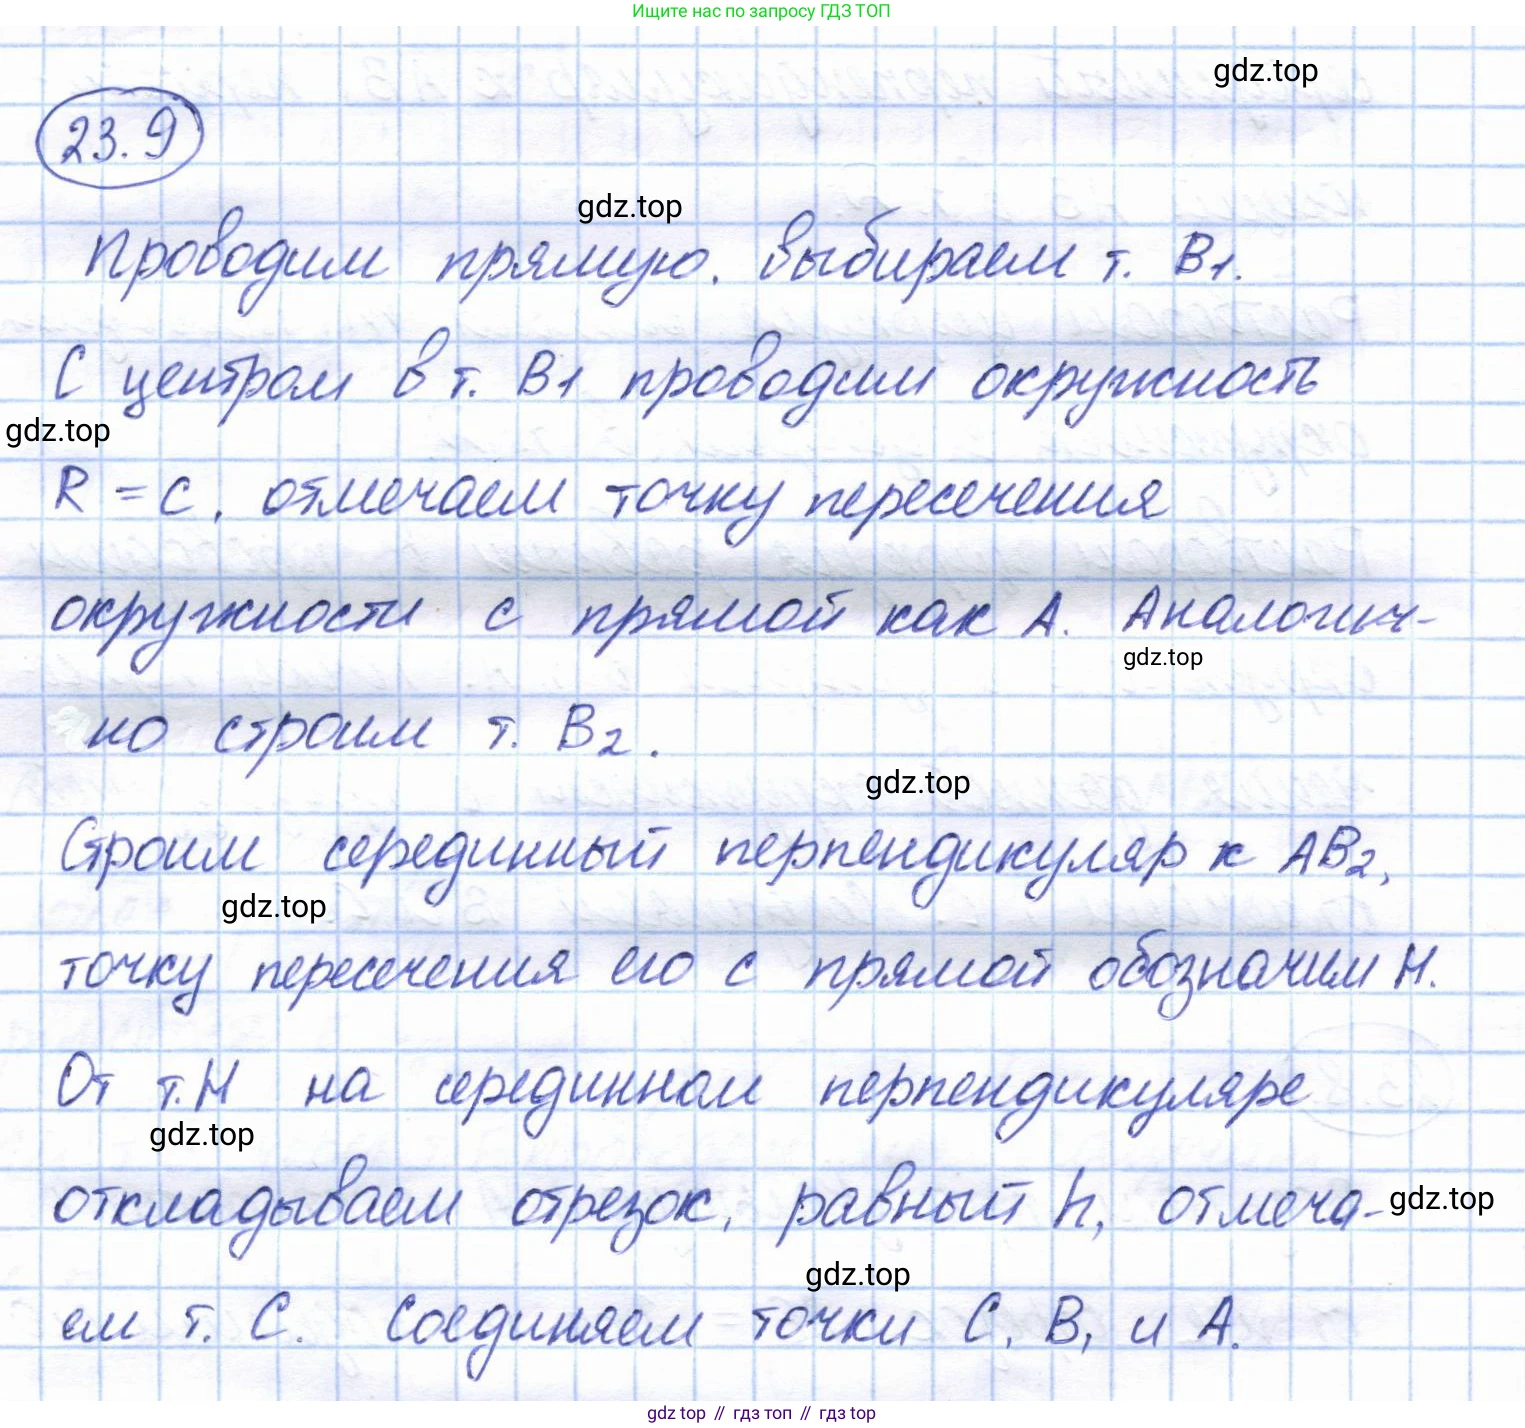 Ищите нас по запросу ГДЗ ТОП
gdz.top
23.9
gdz.top
Проводим прямую. Выбираем т. B1.
С центром в т. B1 проводим окружность
gdz.top
R = c, отмечаем точку пересечения
окружности с прямой как A. Аналогич-
gdz.top
но строим т. B2.
gdz.top
Строим серединный перпендикуляр к AB2,
gdz.top
точку пересечения его с прямой обозначим H.
От т. H на серединном перпендикуляре
gdz.top
откладываем отрезок, равный h, отмеча-
gdz.top
gdz.top
ем т. C. Соединяем точки C, B, и A.
gdz top // гдз топ // гдз top